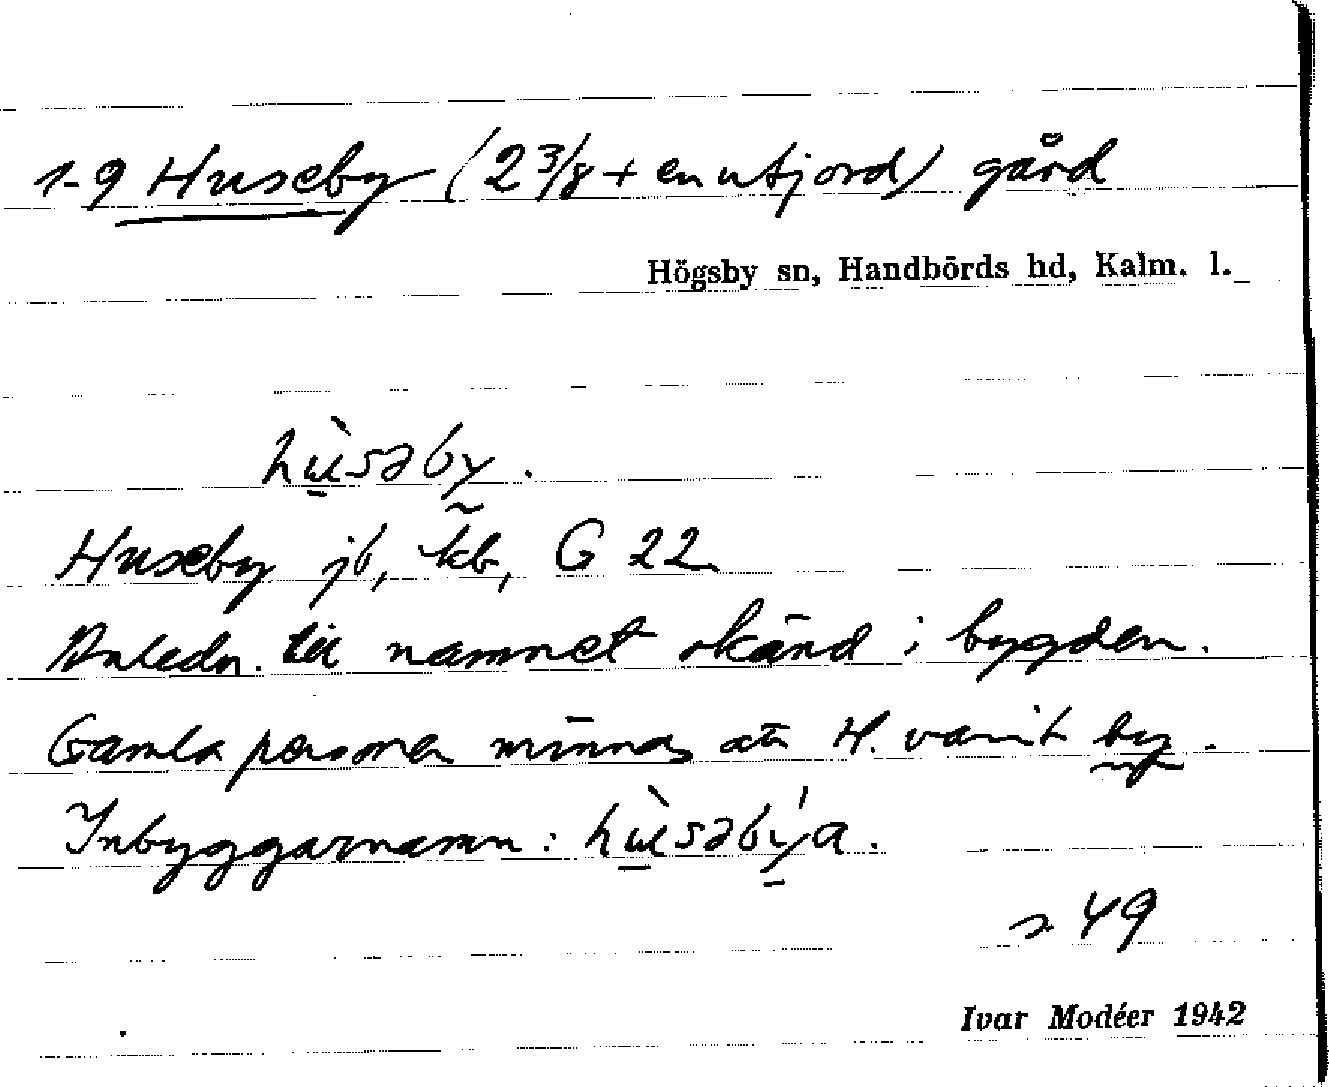 1-9 Huseby (2 3/8 + en utjord) gård
Högsby sn, Handbörds hd, Kalm. l.
hùsəby.
Huseby jb, kb, G 22
Anledn. till namnet okänd i bygden.
Gamla personer minnas att H. varit by.
Inbyggarnamn: hùsəbýa.
s 49
Ivar Modéer 1942